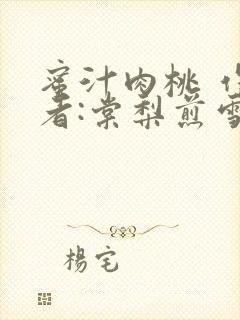 蜜汁肉桃
者:棠梨煎雪
楊宅